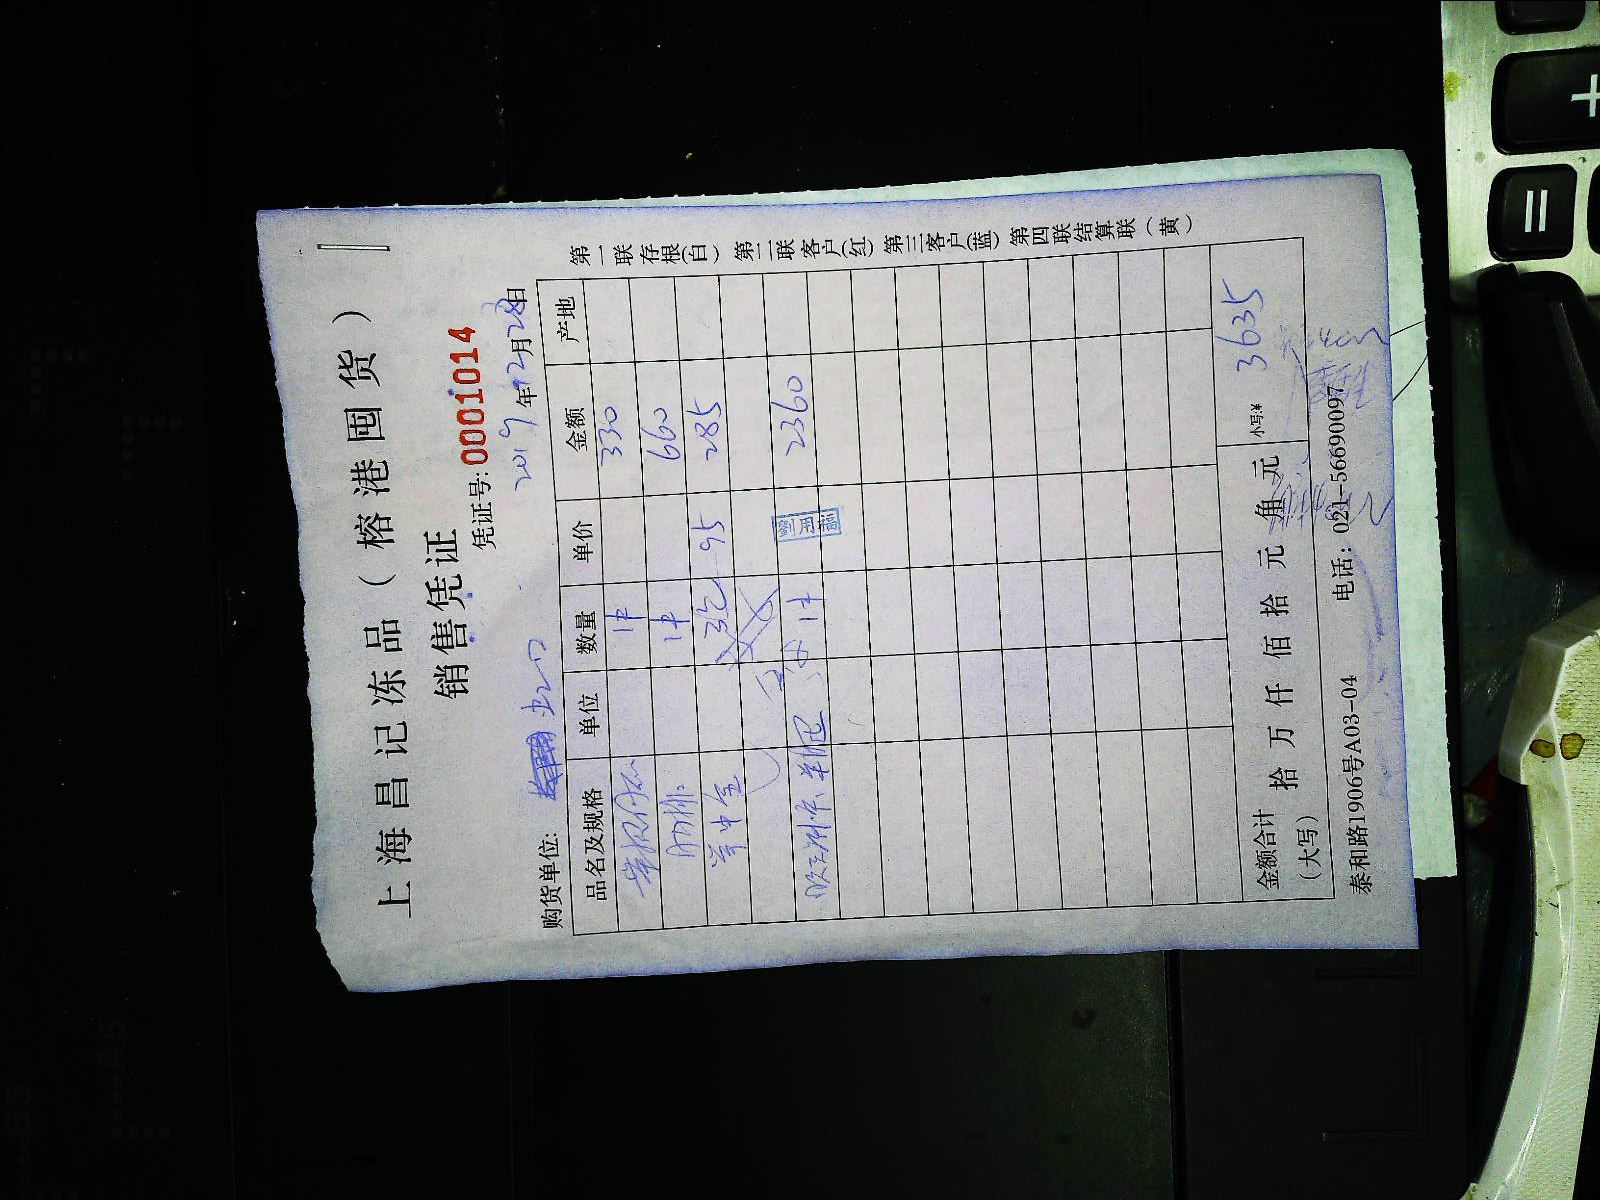 上海昌记冻品（榕港囤货）
销售凭证
凭证号:0001014
购货单位:
2019年12月28日
品名及规格 单位 数量 单价 金额 产地
1件 330
肋排 1件 660
翅中全 3包 95 285
1件 2360
金额合计（大写） 拾 万 仟 佰 拾 元 角 元 小写:¥ 3635
泰和路1906号A03-04 电话：021-56690097
第一联存根(白) 第二联客户(红) 第三客户(蓝) 第四联结算联（黄）
+
=